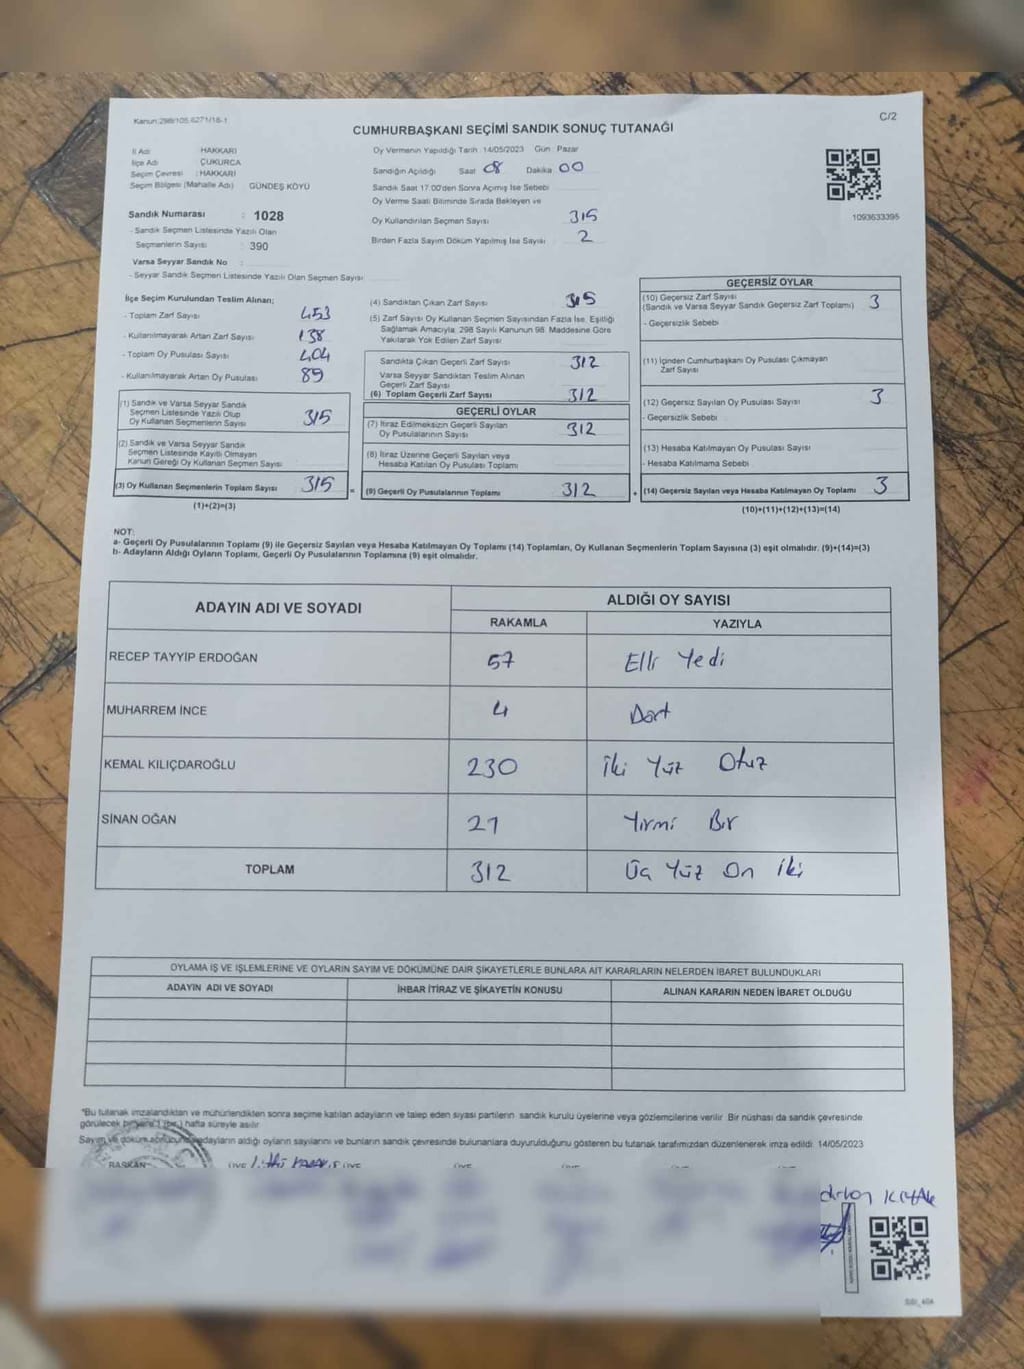 Kanun:298/105,6271/18-1
C/2
CUMHURBAŞKANI SEÇİMİ SANDIK SONUÇ TUTANAĞI
İl Adı : HAKKARİ
İlçe Adı : ÇUKURCA
Seçim Çevresi : HAKKARİ
Seçim Bölgesi (Mahalle Adı) : GÜNDEŞ KÖYÜ
Sandık Numarası : 1028
- Sandık Seçmen Listesinde Yazılı Olan
Seçmenlerin Sayısı : 390
Varsa Seyyar Sandık No :
- Seyyar Sandık Seçmen Listesinde Yazılı Olan Seçmen Sayısı:
Oy Vermenin Yapıldığı Tarih :14/05/2023 Gün : Pazar
Sandığın Açıldığı Saat 08 Dakika 00
Sandık Saat 17:00'den Sonra Açılmış İse Sebebi
Oy Verme Saati Bitiminde Sırada Bekleyen ve
Oy Kullandırılan Seçmen Sayısı 315
Birden Fazla Sayım Döküm Yapılmış İse Sayısı 2
1093633395
İlçe Seçim Kurulundan Teslim Alınan;
- Toplam Zarf Sayısı 453
- Kullanılmayarak Artan Zarf Sayısı 138
- Toplam Oy Pusulası Sayısı 404
- Kullanılmayarak Artan Oy Pusulası 89
(1) Sandık ve Varsa Seyyar Sandık
Seçmen Listesinde Yazılı Olup
Oy Kullanan Seçmenlerin Sayısı 315
(2) Sandık ve Varsa Seyyar Sandık
Seçmen Listesinde Kayıtlı Olmayan
Kanun Gereği Oy Kullanan Seçmen Sayısı
(3) Oy Kullanan Seçmenlerin Toplam Sayısı 315
(1)+(2)=(3)
(4) Sandıktan Çıkan Zarf Sayısı 315
(5) Zarf Sayısı Oy Kullanan Seçmen Sayısından Fazla İse, Eşitliği
Sağlamak Amacıyla, 298 Sayılı Kanunun 98. Maddesine Göre
Yakılarak Yok Edilen Zarf Sayısı
Sandıkta Çıkan Geçerli Zarf Sayısı 312
Varsa Seyyar Sandıktan Teslim Alınan
Geçerli Zarf Sayısı
(6) Toplam Geçerli Zarf Sayısı 312
GEÇERLİ OYLAR
(7) İtiraz Edilmeksizin Geçerli Sayılan
Oy Pusulalarının Sayısı 312
(8) İtiraz Üzerine Geçerli Sayılan veya
Hesaba Katılan Oy Pusulası Toplamı
= (9) Geçerli Oy Pusulalarının Toplamı 312 +
GEÇERSİZ OYLAR
(10) Geçersiz Zarf Sayısı
(Sandık ve Varsa Seyyar Sandık Geçersiz Zarf Toplamı) 3
- Geçersizlik Sebebi
(11) İçinden Cumhurbaşkanı Oy Pusulası Çıkmayan
Zarf Sayısı
(12) Geçersiz Sayılan Oy Pusulası Sayısı 3
- Geçersizlik Sebebi
(13) Hesaba Katılmayan Oy Pusulası Sayısı
- Hesaba Katılmama Sebebi
(14) Geçersiz Sayılan veya Hesaba Katılmayan Oy Toplamı 3
(10)+(11)+(12)+(13)=(14)
NOT:
a- Geçerli Oy Pusulalarının Toplamı (9) ile Geçersiz Sayılan veya Hesaba Katılmayan Oy Toplamı (14) Toplamları, Oy Kullanan Seçmenlerin Toplam Sayısına (3) eşit olmalıdır. (9)+(14)=(3)
b- Adayların Aldığı Oyların Toplamı, Geçerli Oy Pusulalarının Toplamına (9) eşit olmalıdır.
ADAYIN ADI VE SOYADI
ALDIĞI OY SAYISI
RAKAMLA YAZIYLA
RECEP TAYYİP ERDOĞAN 57 Elli Yedi
MUHARREM İNCE 4 Dört
KEMAL KILIÇDAROĞLU 230 İki Yüz Otuz
SİNAN OĞAN 21 Yirmi Bir
TOPLAM 312 Üç Yüz On İki
OYLAMA İŞ VE İŞLEMLERİNE VE OYLARIN SAYIM VE DÖKÜMÜNE DAİR ŞİKAYETLERLE BUNLARA AİT KARARLARIN NELERDEN İBARET BULUNDUKLARI
ADAYIN ADI VE SOYADI İHBAR İTİRAZ VE ŞİKAYETİN KONUSU ALINAN KARARIN NEDEN İBARET OLDUĞU
*Bu tutanak imzalandıktan ve mühürlendikten sonra seçime katılan adayların ve talep eden siyasi partilerin sandık kurulu üyelerine veya gözlemcilerine verilir. Bir nüshası da sandık çevresinde
görülecek bir yere 1 (bir) hafta süreyle asılır.
Sayım ve döküm sonucunda adayların aldığı oyların sayılarını ve bunların sandık çevresinde bulunanlara duyurulduğunu gösteren bu tutanak tarafımızdan düzenlenerek imza edildi. 14/05/2023
BAŞKAN ÜYE ÜYE ÜYE ÜYE ÜYE ÜYE